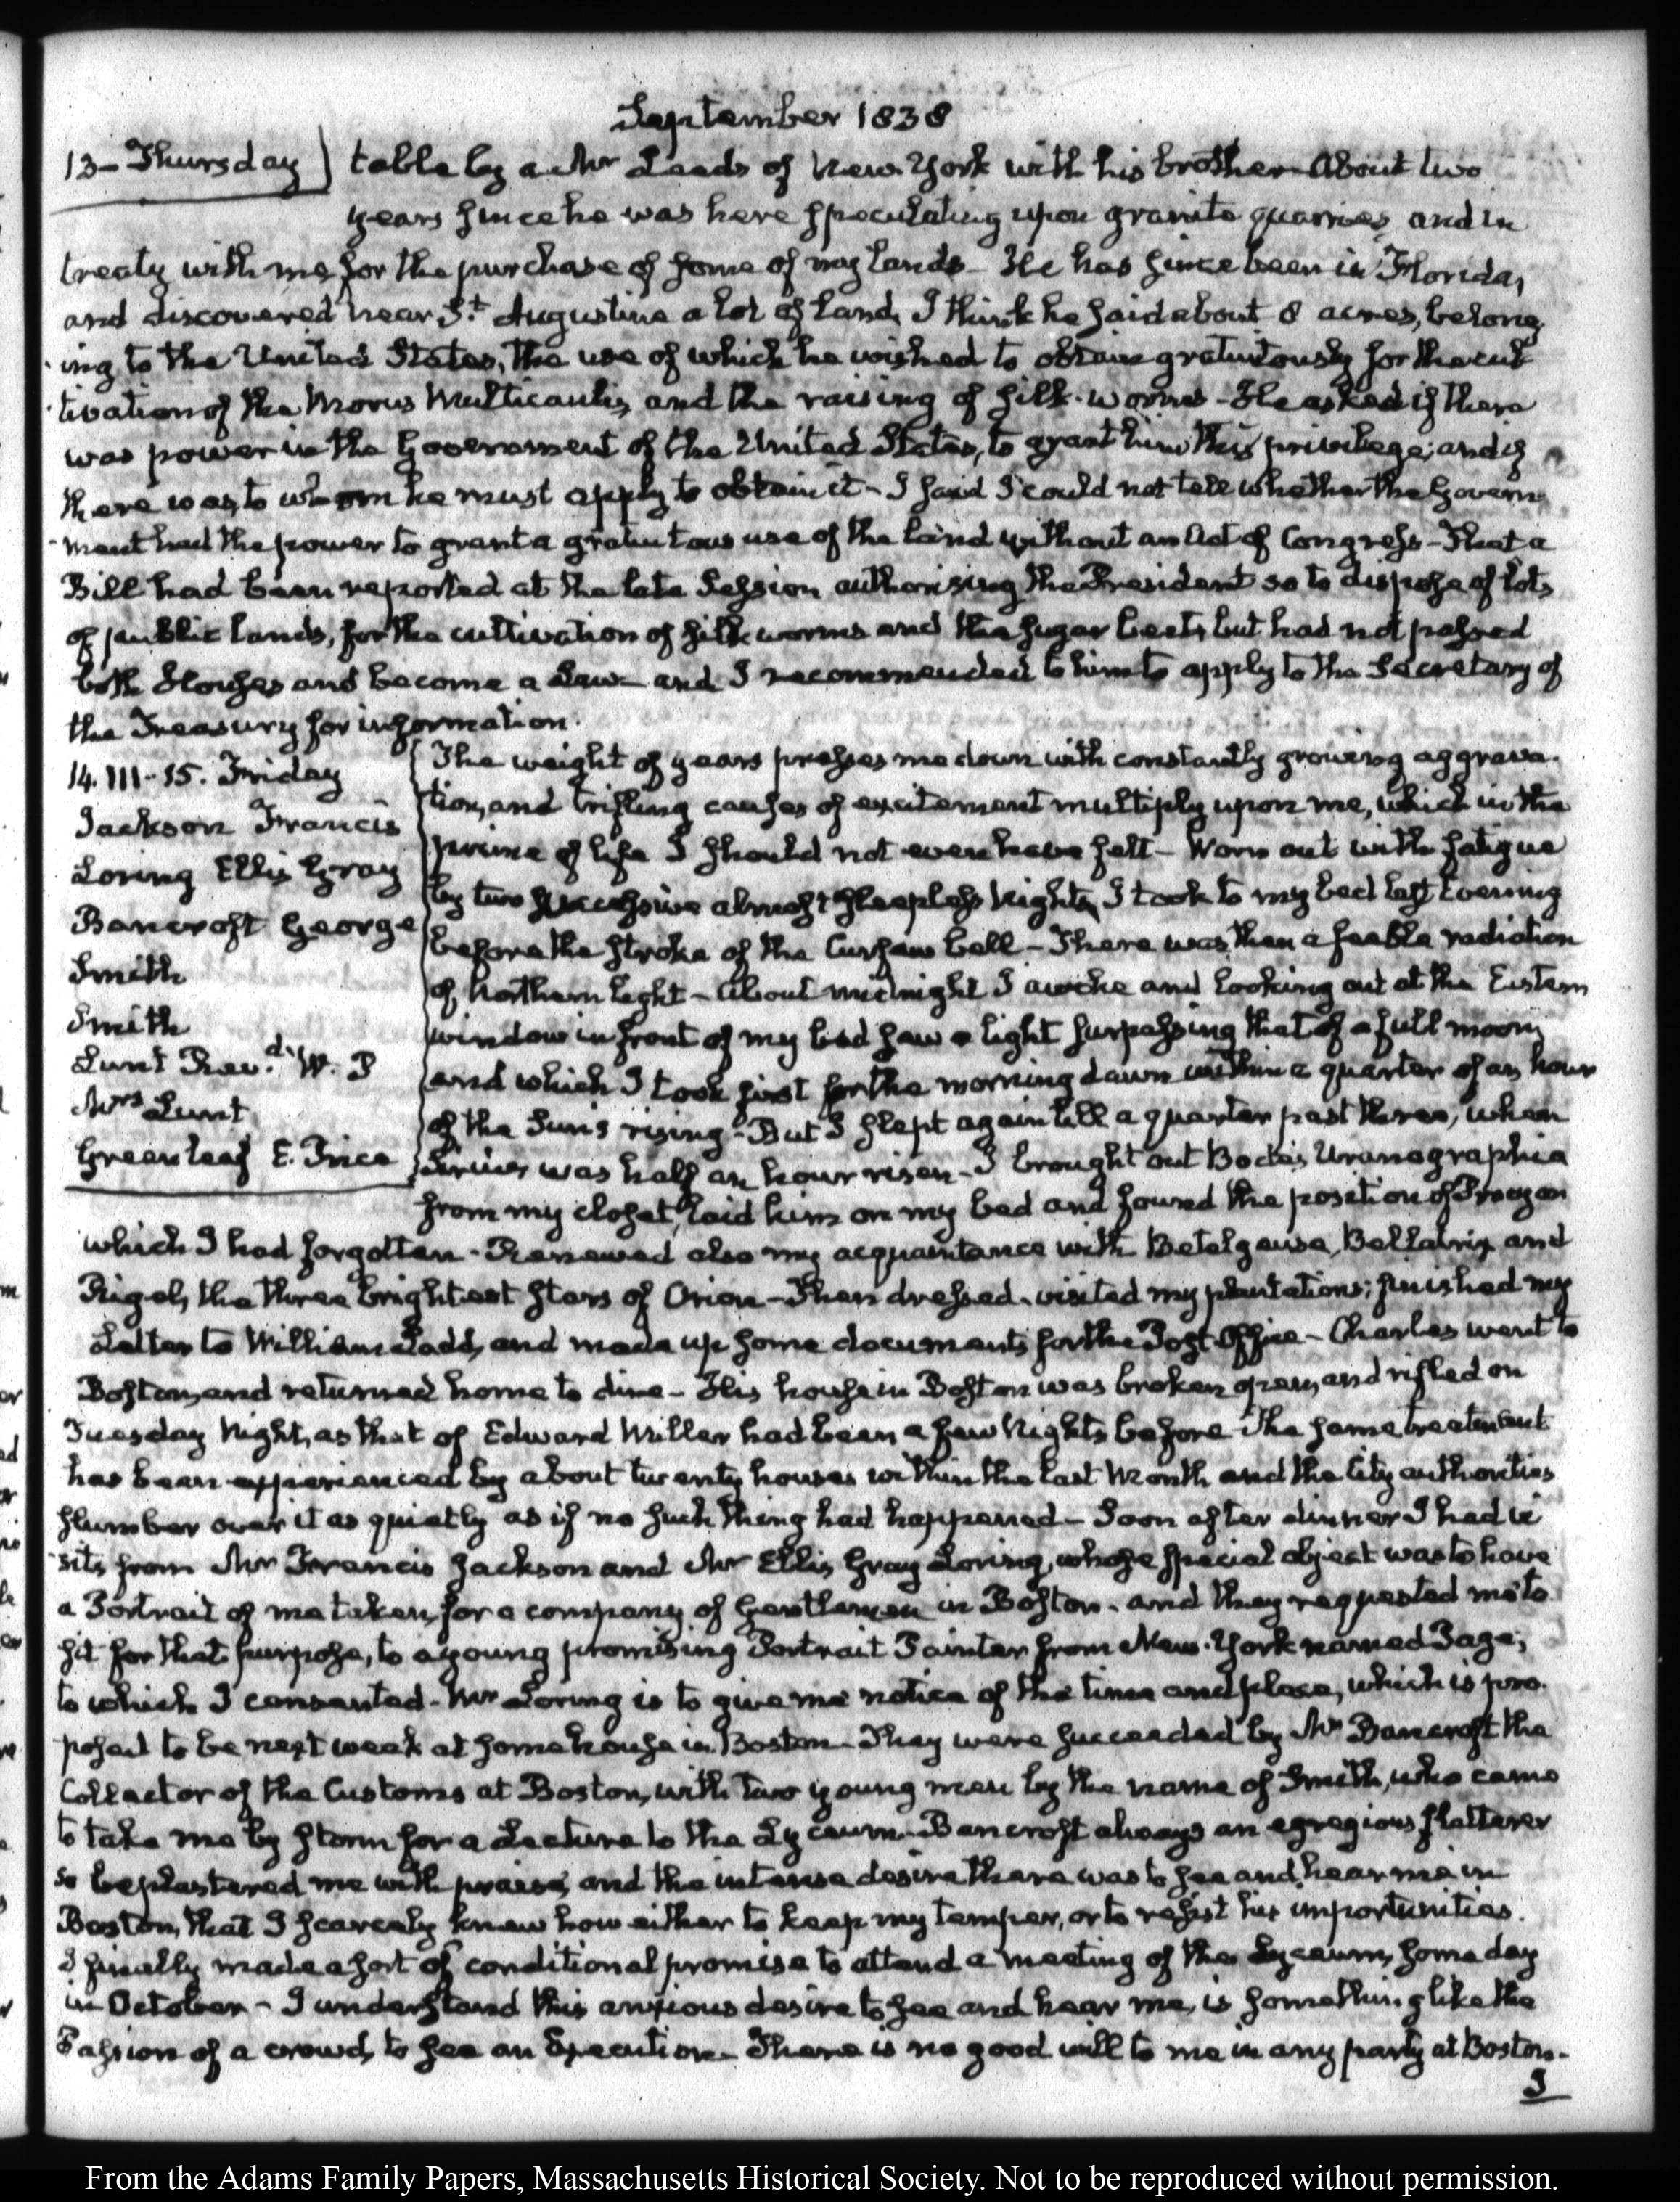 September 1838
13- Thursday) table by a Mr Leeds of New-York with his brother- About two
years since he was here speculating upon granite quarries, and in
treaty with me, for the purchase of some of my lands- He has since been in Florida,
and discovered near St. Augustine a lot of land, I think he said about 8 acres, belong
ing to the United States, the use of which he wished to obtain gratuitously for the cul
tivation of the Morus Multicaulis, and the raising of silk-worms- He asked if there
was power in the Government of the United States, to grant him this privilege; and if
there was, to whom he must apply to obtain it- I said I could not tell whether the Govern
-ment had the power to grant a gratuitous use of the land without an Act of Congress- That a
Bill had been reported at the late Session authorising the President so to dispose of lots,
of public lands, for the cultivation of silk worms and the sugar beet, but had not passed
both Houses and become a Law- and I recommended to him to apply to the Secretary of
the Treasury for information.
14. III-15. Friday
Jackson Francis
Loring Ellis Gray
Bancroft George
Smith
Smith
Lunt Revd. W. P
Mrs Lunt
Greenleaf E. Price
The weight of years presses me down with constantly growing aggrava-
tion, and trifling causes of excitement multiply upon me, which in the
prime of life I should not even have felt- Worn out with fatigue
by two successive almost sleepless Nights, I took to my bed last Evening
before the stroke of the Curfew bell- There was then a feeble radiation
of Northern light- About midnight I awoke and looking out at the Eastern
window in front of my bed saw a light surpassing that of a full moon,
and which I took first for the morning dawn within a quarter of an hour
of the Sun's rising- But I slept again till a quarter past three, when
Sirius was half an hour risen- I brought out Bode's Uranographia
from my closet, laid him on my bed and found the position of Procyon
which I had forgotten- Renewed also my acquaintance with Betelgeuse, Bellatrix and
Rigel, the three brightest stars of Orion- Then dressed, visited my plantations; finished my
Letter to William Ladd, and made up some documents for the Post-Office- Charles went to
Boston, and returned home to dine- His house in Boston was broken open, and rifled on
Tuesday Night, as that of Edward Miller had been a few Nights before- The same treatment
has been experienced by about twenty houses within the last Month and the City authorities
slumber over it as quietly as if no such thing had happened- Soon after dinner I had vi
-sits from Mr Francis Jackson and Mr Ellis Gray Loring, whose special object was to have
a Portrait of me taken, for a company of Gentlemen in Boston- and they requested me to
sit for that purpose, to a young promising Portrait Painter from New-York named Page;
to which I consented- Mr Loring is to give me notice of the time and place, which is pro-
posed to be next week at some house in Boston- They were succeeded by Mr Bancroft the
Collector of the Customs at Boston, with two young men by the name of Smith, who came
to take me by storm for a Lecture to the Lyceum- Bancroft always an egregious flatterer
so beplastered me with praise, and the intense desire there was to see and hear me in
Boston, that I scarcely knew how either to keep my temper, or to resist his importunities.
I finally made a sort of conditional promise to attend a meeting of the Lyceum, some day
in October- I understand this anxious desire to see and hear me, is something like the
Passion of a crowd, to see an Execution- There is no good will to me in any party at Boston-
I
From the Adams Family Papers, Massachusetts Historical Society. Not to be reproduced without permission.